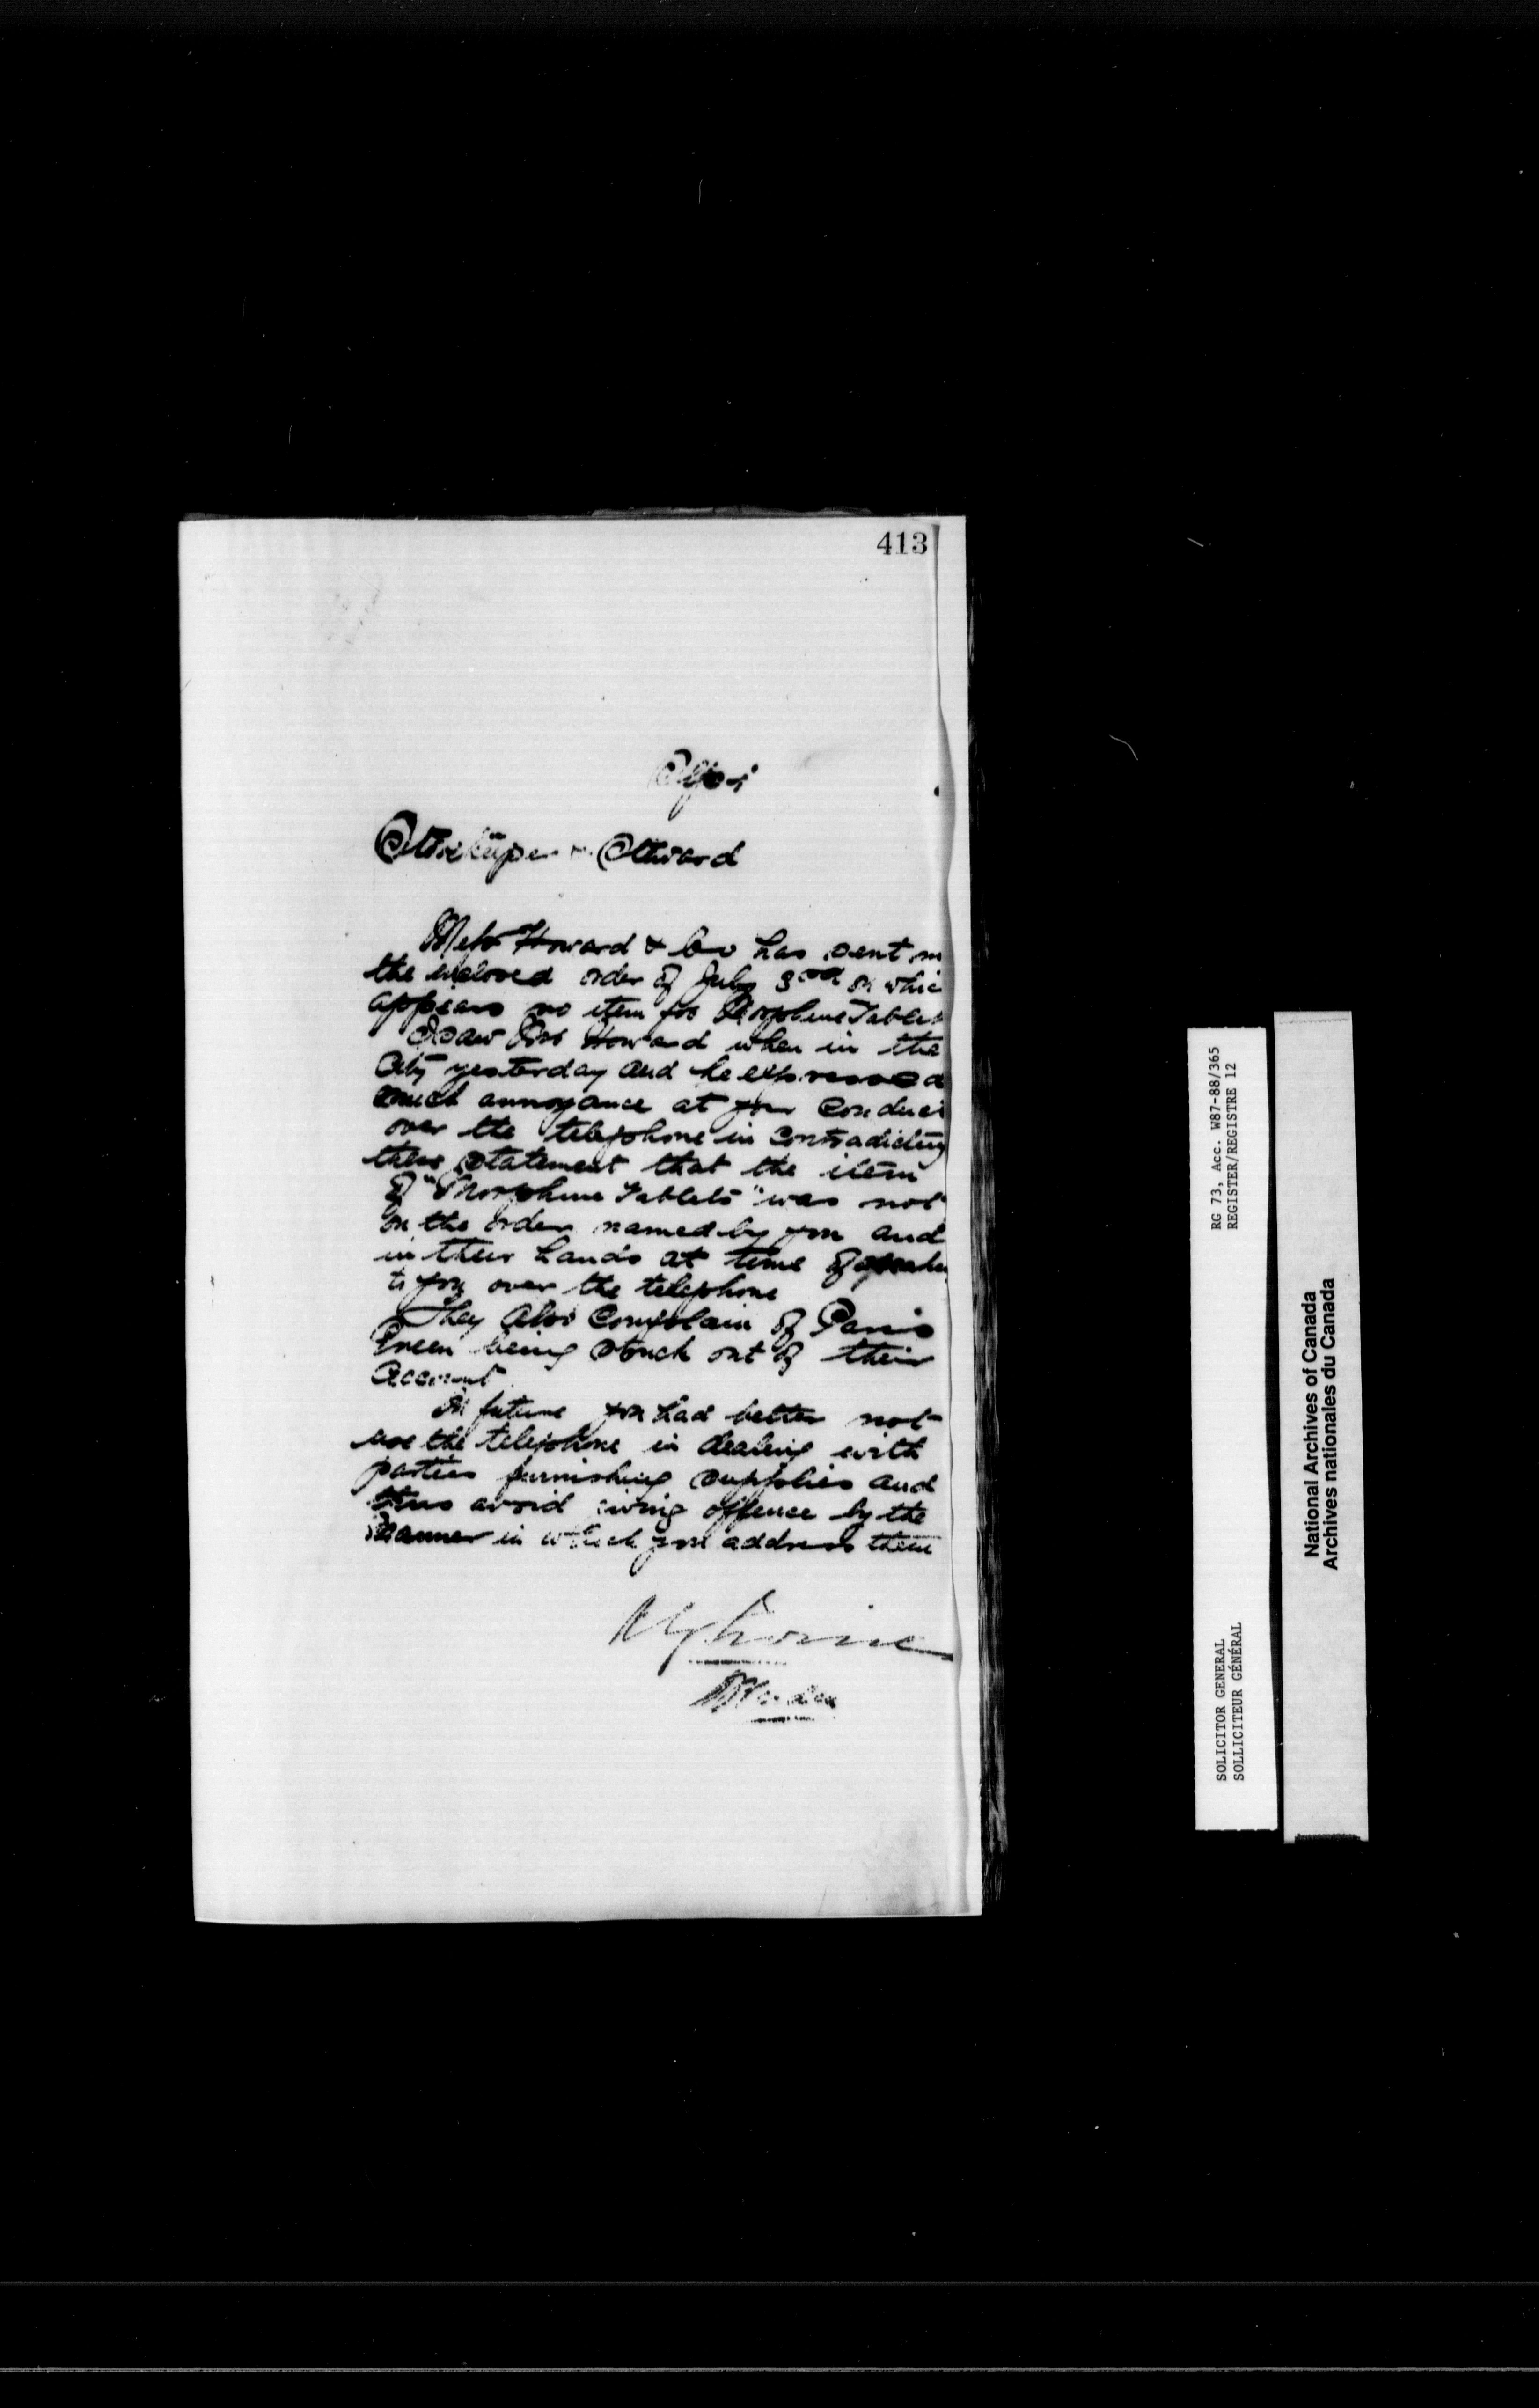 413
Storekeeper & Steward
Messrs Howard & Co has sent m
the enclosed order of July 3rd on whic
appears no item for Morphine Tablets
I saw Howard when in the
City yesterday and he expressed
much annoyance at your conduct
over the telephone in contradicting
their statement that the item
of "Morphine Tablets" was not
on the order named by you and
in their hands at time of
to you over the telephone
They also complain of Paris
Green being struck out of their
account
In future you had better not
use the telephone in dealing with
parties furnishing supplies and
thus avoid giving offence by the
manner in which you address them
Warden
SOLICITOR GENERAL RG 73, Acc. W87-88/365
SOLLICITEUR GÉNÉRAL REGISTER/REGISTRE 12
National Archives of Canada
Archives nationales du Canada